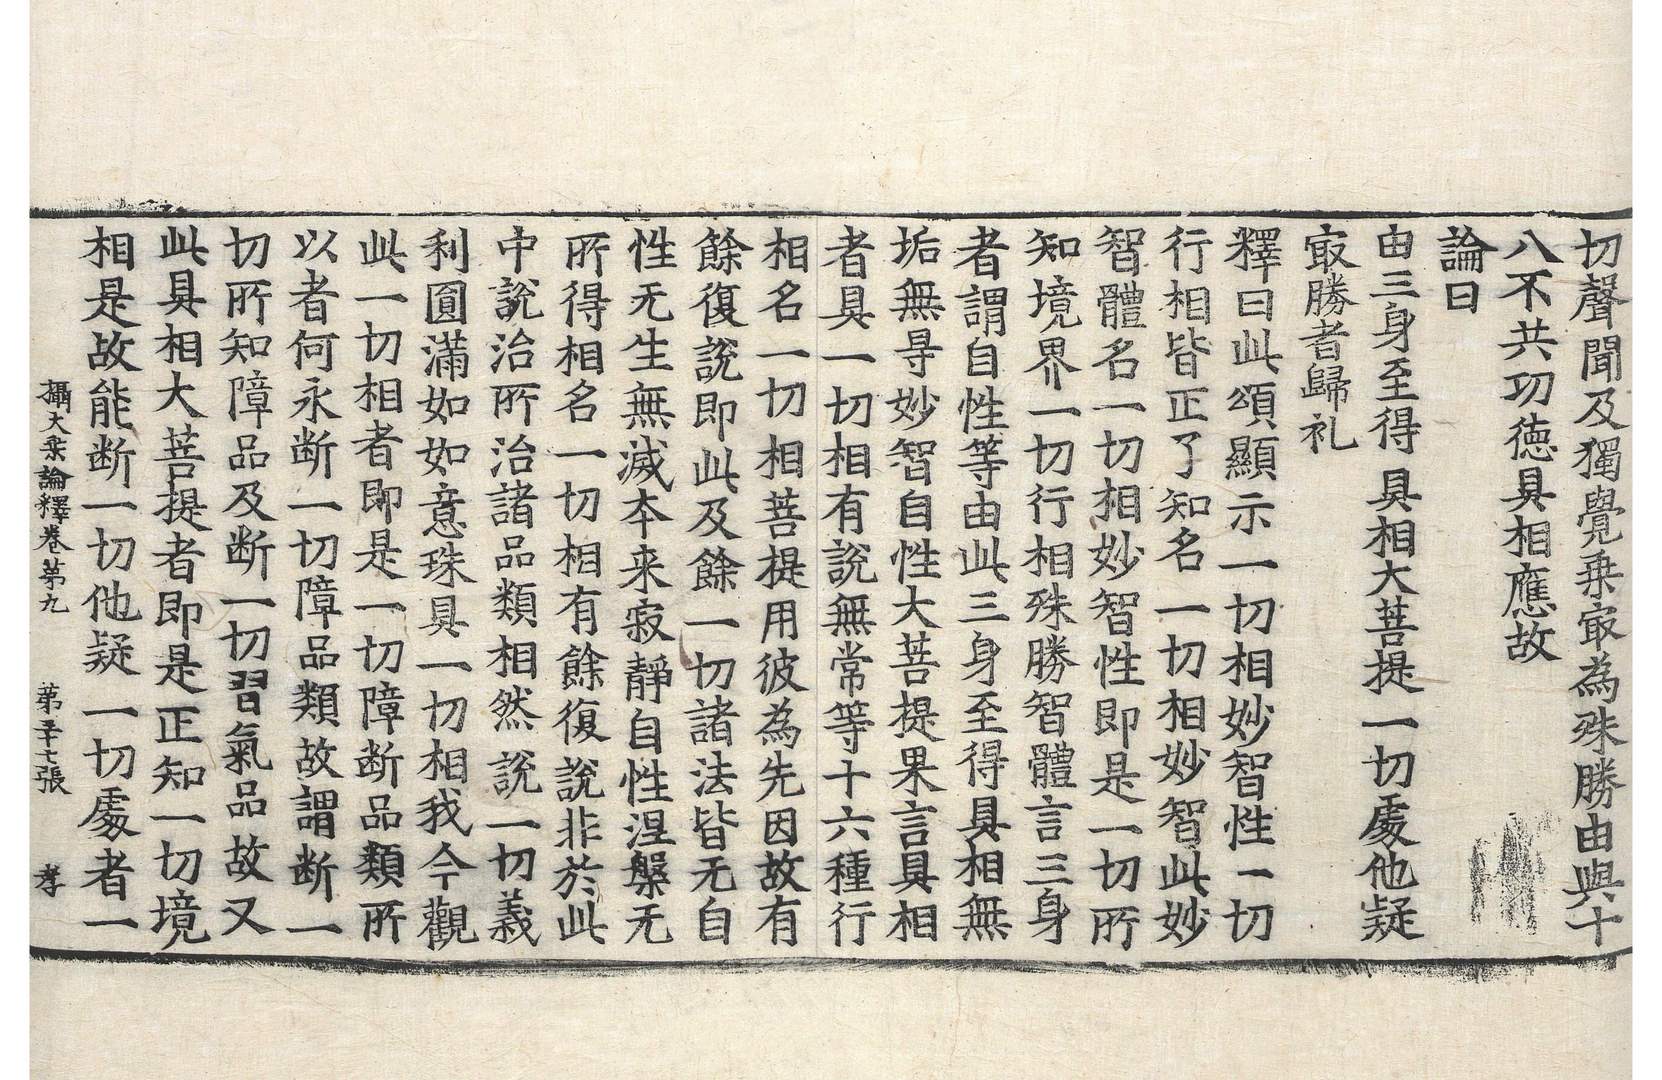 切聲聞及獨覺乗㝡為殊勝由與十
八不共功徳具相應故
論曰
由三身至得 具相大菩提 一切處他疑
㝡勝者歸礼
釋曰此頌顯示一切相妙智性一切
行相皆正了知名一切相妙智此妙
智體名一切相妙智性即是一切所
知境界一切行相殊勝智體言三身
者謂自性等由此三身至得具相無
垢無㝵妙智自性大菩提果言具相
者具一切相有說無常等十六種行
相名一切相菩提用彼為先因故有
餘復說即此及餘一切諸法皆无自
性无生無滅本来寂靜自性涅槃无
所得相名一切相有餘復說非於此
中說治所治諸品類相然說一切義
利圓滿如如意珠具一切相我今觀
此一切相者即是一切障断品類所
以者何永断一切障品類故謂断一
切所知障品及断一切習氣品故又
此具相大菩提者即是正知一切境
相是故能断一切他疑一切處者一
攝大乗論釋卷第九 第二十七張 孝